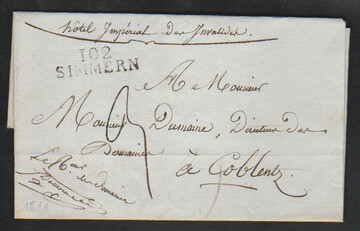 hôtel Impérial des Invalides
102
SIMMERN
A Monsieur
Monsieur Dumaine, Directeur des
Domaines
à Coblentz
Le de Domaine
1811